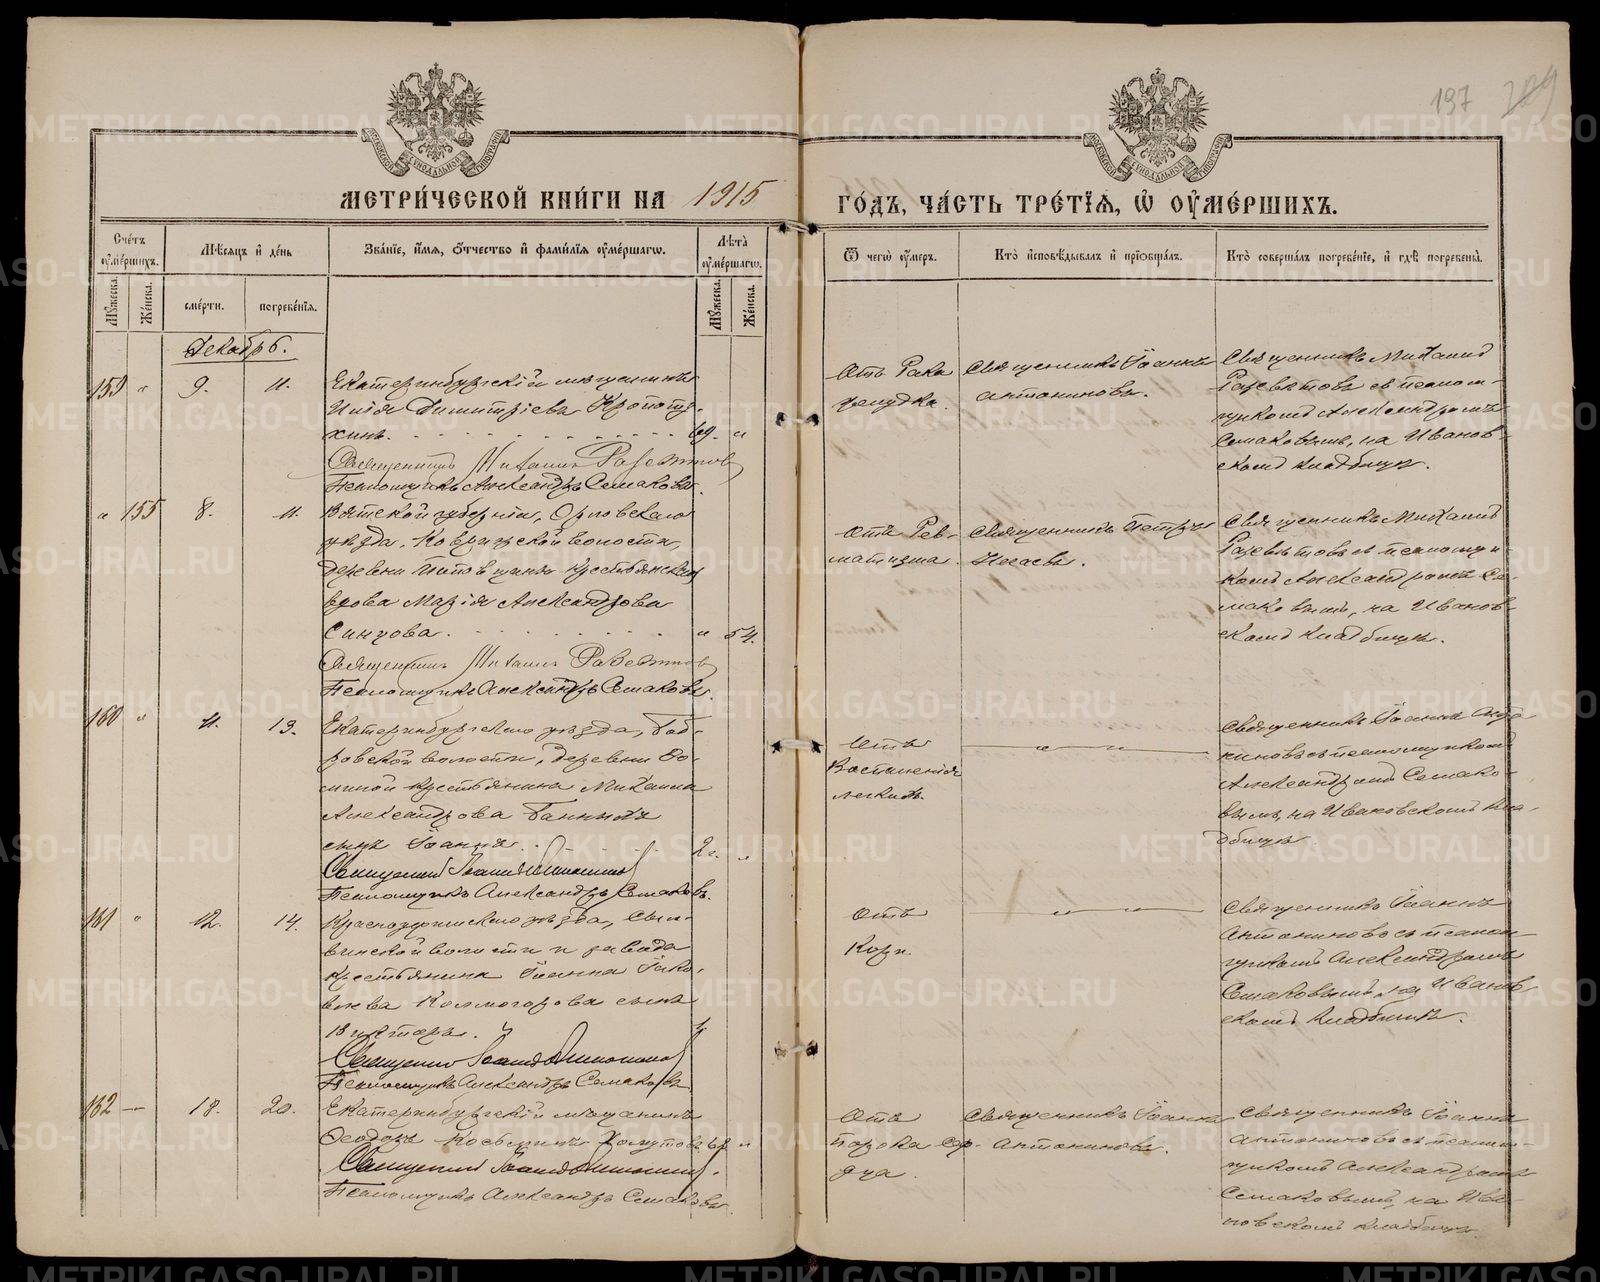 197 209
МЕТРИ́ЧЕСКОЙ КНИ́ГИ НА 1915 ГО́ДЪ, ЧА́СТЬ ТРЕ́ТІЯ, Ѡ ОУМЕ́РШИХЪ.
Сче́тъ оуме́ршихъ.
Мѣсяцъ и де́нь
Зва́ніе, и́мя, о́тчество и фами́лія оуме́ршагѡ.
Лѣта̀ оуме́ршагѡ.
Ѿ чегѡ̀ оу́меръ.
Кто̀ исповѣ́дывалъ и пріѡбща́лъ.
Кто̀ соверша́лъ погребе́ніе, и гдѣ̀ погребены̀.
Му́жеска.
Же́нска.
сме́рти.
погребе́нія.
Му́жеска.
Же́нска.
Декабрь.
159 " 9. 11.
Екатеринбургскій мѣщанинъ
Илія Димитріевъ Кропоту-
хинъ. 69. "
Священникъ Михаилъ
Псаломщикъ Александръ Семаковъ.
Отъ Рака
желудка.
Священникъ Іоаннъ
Антониновъ.
Священникъ Михаилъ
съ псалом-
щикомъ Александромъ
Семаковымъ, на Иванов-
скомъ кладбищѣ.
" 155 8. 11.
Вятской губерніи, Орловскаго
уѣзда,
деревни крестьянская
вдова Марія Александрова
" 54.
Священникъ Михаилъ
Псаломщикъ Александръ Семаковъ.
Отъ Рев-
матизма.
Священникъ Петръ
Священникъ Михаилъ
съ псаломщи-
комъ Александромъ Се-
маковымъ, на Иванов-
скомъ кладбищѣ.
160 " 11. 13.
Екатеринбургскаго уѣзда, Боб-
ровской волости, деревни Фо-
миной крестьянина Михаила
Александрова Банныхъ
сынъ Іоаннъ. 2 "
Священникъ Іоаннъ Антониновъ
Псаломщикъ Александръ Семаковъ.
Отъ
Воспаленія
легкихъ.
Священникъ Іоаннъ Анто-
ниновъ съ псаломщикомъ
Александромъ Семако-
вымъ, на Ивановскомъ кла-
дбищѣ.
161 " 12. 14.
Красноуфимскаго уѣзда, Сыл-
винской волости и завода
крестьянина Іоанна Іако-
влева Колмогорова сынъ
Священникъ Іоаннъ Антониновъ
Псаломщикъ Александръ Семаковъ.
Отъ
Кори.
Священникъ Іоаннъ
Антониновъ съ псалом-
щикомъ Александромъ
Семаковымъ, на Иванов-
скомъ кладбищѣ.
162 — 18. 20.
Екатеринбургскій мѣщанинъ
Ѳеодоръ Косьминъ
Священникъ Іоаннъ Антониновъ.
Псаломщикъ Александръ Семаковъ.
Отъ
порока сер-
дца.
Священникъ Іоаннъ
Антониновъ.
Священникъ Іоаннъ
Антониновъ съ псалом-
щикомъ Александромъ
Семаковымъ, на Ива-
новскомъ кладбищѣ.
METRIKI.GASO-URAL.RU